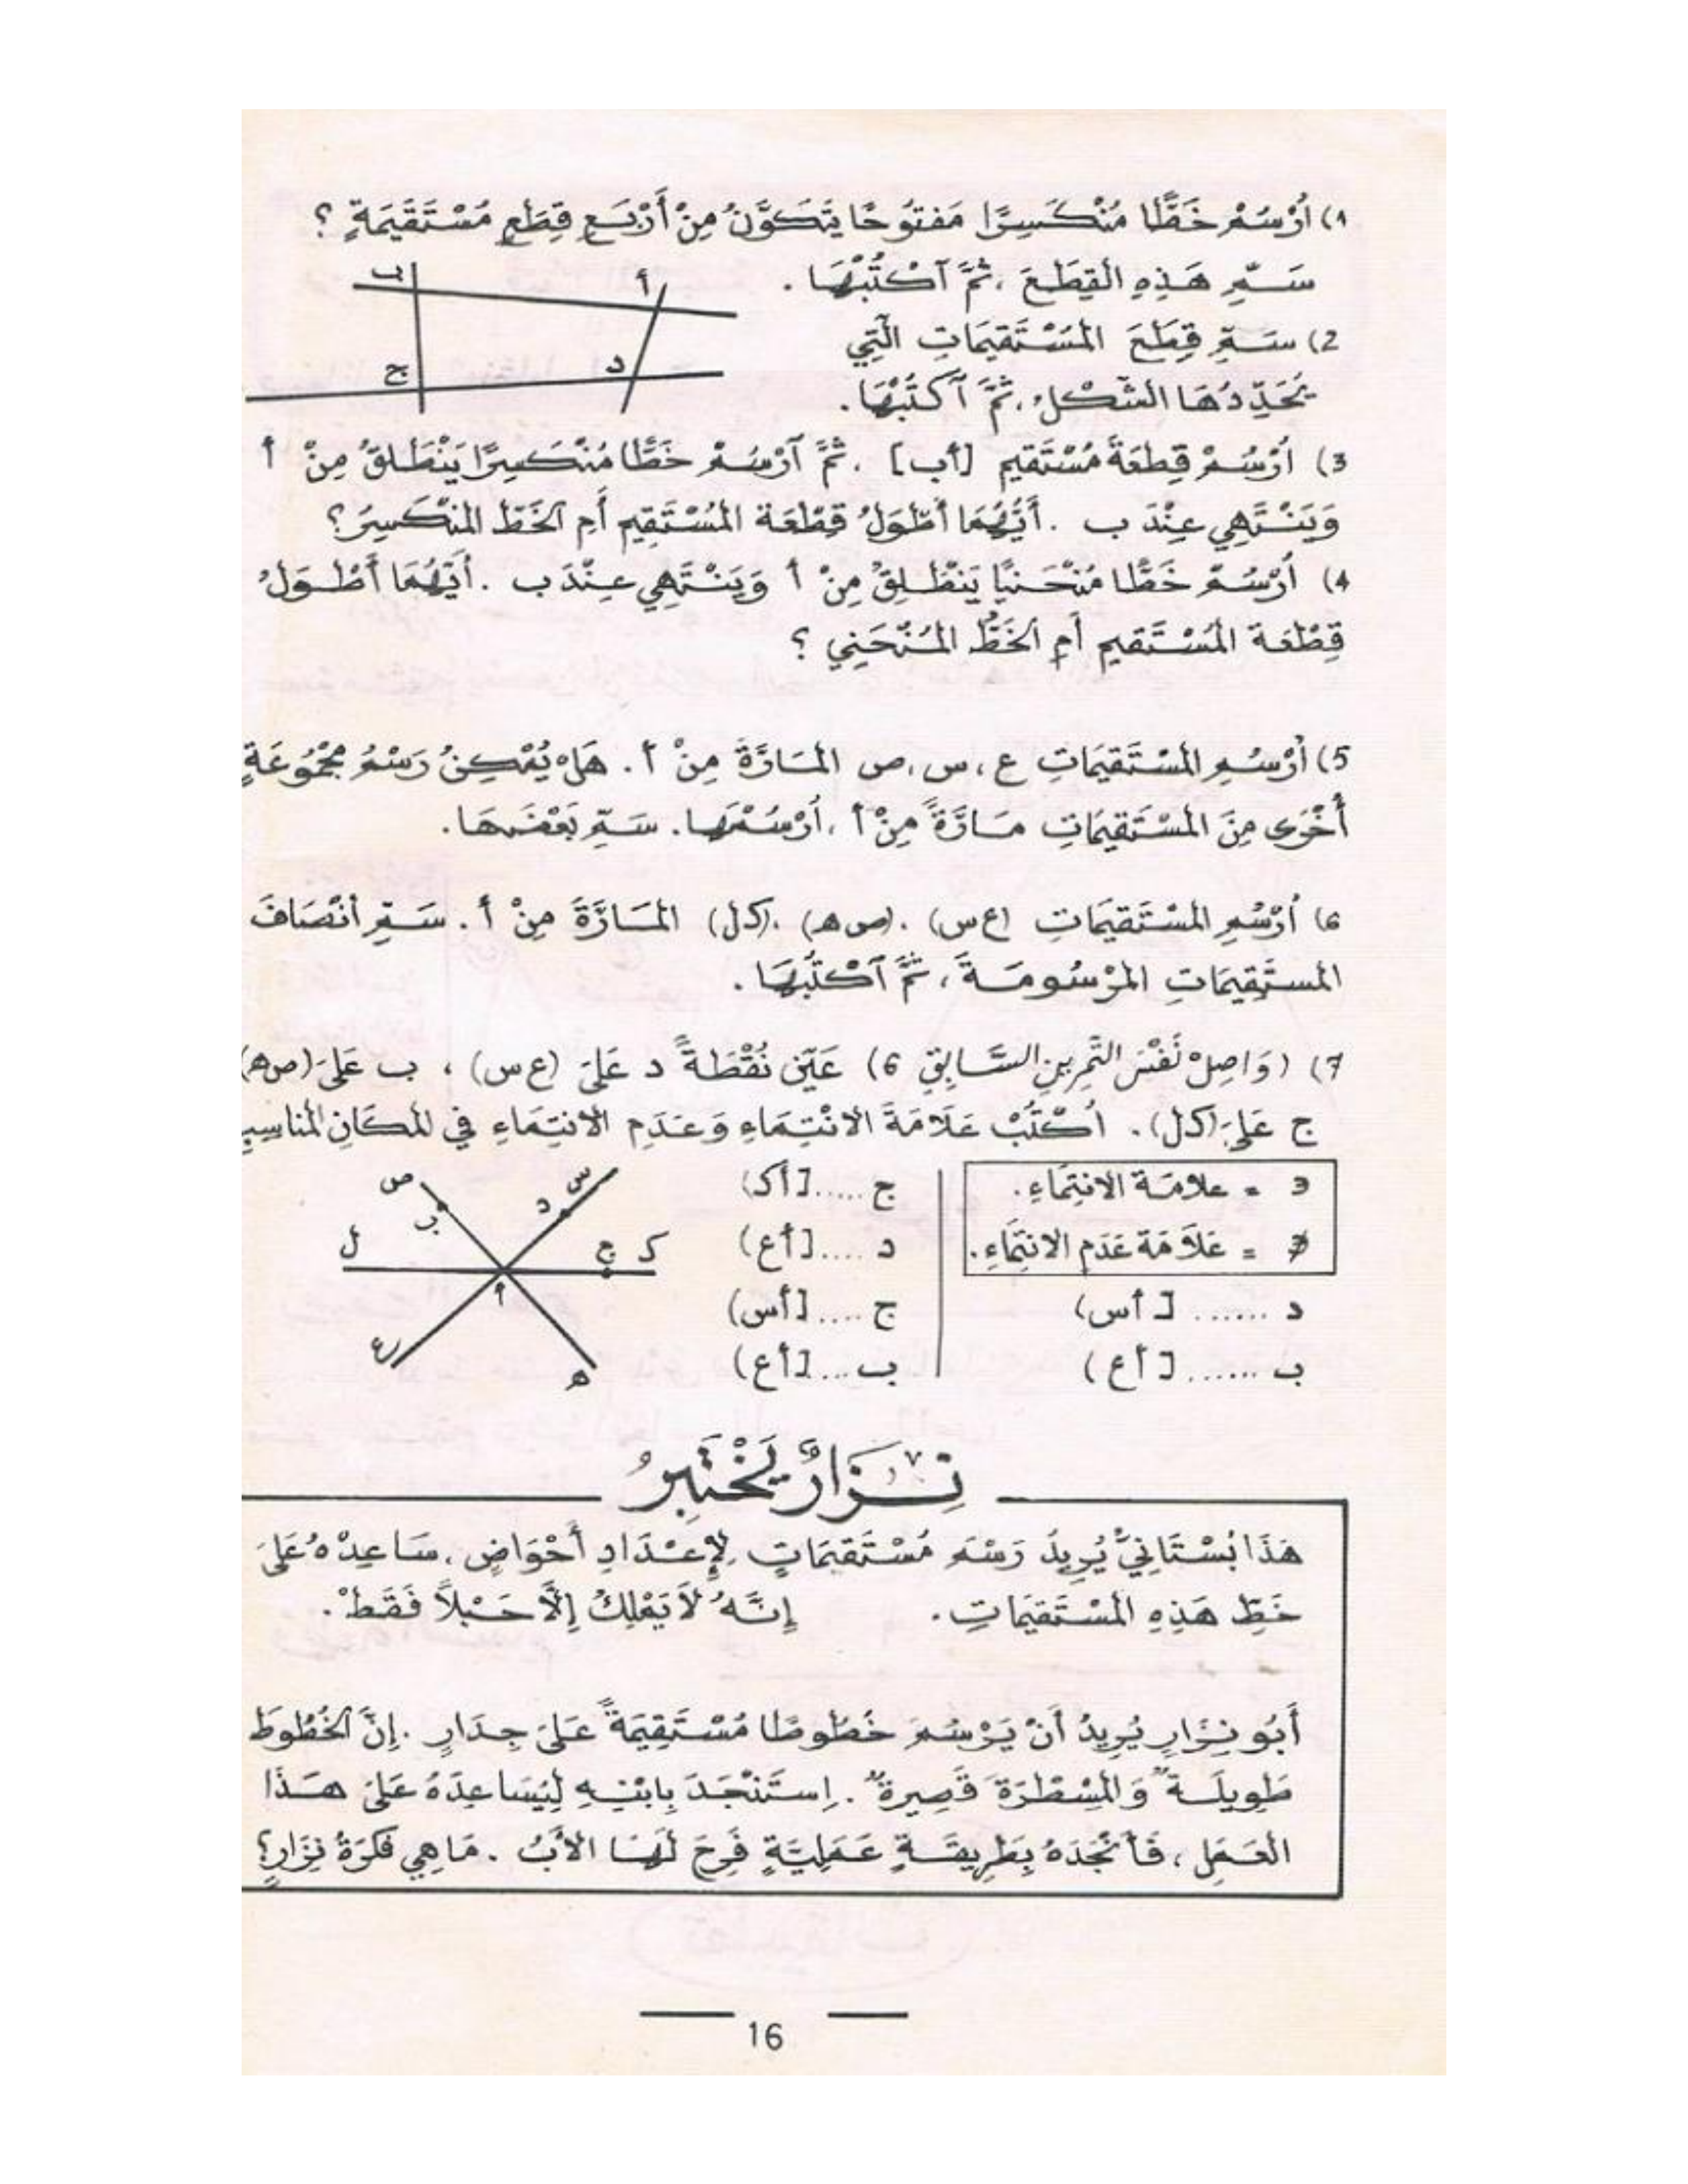 1) أُرْسُمْ خَطًّا مُنْكَسِرًا مَفتُوحًا يَتَكَوَّنُ مِنْ أَرْبَعِ قِطَعٍ مُسْتَقِيمَةٍ ؟
سَمِّ هَذِهِ القِطَعَ ، ثُمَّ آكْتُبْهَا .
ب
أ
ج
د
2) سَمِّ قِطَعَ المُسْتَقِيمَاتِ الَّتِي
يُحَدِّدُهَا الشَّكْلُ ، ثُمَّ آكْتُبْهَا .
3) اُرْسُمْ قِطعَةَ مُسْتَقِيمٍ [أب] . ثُمَّ آرْسُمْ خَطًّا مُنْكَسِرًا يَنْطَلِقُ مِنْ أ
وَيَنْتَهِي عِنْدَ ب . أَيُّهُمَا أطْوَلُ قِطْعَة المُسْتَقِيمِ أَمِ الخَطّ المُنْكَسِرُ ؟
4) اُرْسُمْ خَطًّا مُنْحَنِيًا يَنْطَلِقُ مِنْ أ وَيَنْتَهِي عِنْدَ ب . أَيُّهُمَا أَطْوَلُ
قِطْعَة المُسْتَقِيمِ أَمِ الخَطُّ المُنْحَنِي ؟
5) اُرْسُمِ المُسْتَقِيمَاتِ ع ، س ، ص المَارَّةَ مِنْ أ . هَلْ يُمْكِنُ رَسْمُ مَجْمُوعَةٍ
أُخْرَى مِنَ المُسْتَقِيمَاتِ مَارَّةً مِنْ أ ، اُرْسُمْهَا . سَمِّ بَعْضَهَا .
6) اُرْسُمِ المُسْتَقِيمَاتِ (ع س) . (ص ه) . (ك ل) المَارَّةَ مِنْ أ . سَمِّ أنْصَافَ
المستَقِيمَاتِ المَرْسُومَةَ ، ثُمَّ آكْتُبْهَا .
7) (وَاصِلْ نَفْسَ التَّمْرِينِ السَّابِقِ 6) عَيِّن نُقْطَةً د عَلَى (ع س) ، ب عَلَى (ص ه)
ج عَلَى (ك ل) . اُكْتُبْ عَلَامَةَ الانْتِمَاءِ وَعَدَمِ الانتِمَاءِ فِي المَكَانِ المُنَاسِبِ
∋ = علامَة الانتِمَاءِ .
∌ = عَلَامَة عَدَمِ الانتِمَاءِ .
د ....... [ أس)
ب ....... [ أع )
ج ..... [أك)
د .... [أع)
ج .... [أس)
ب ... [أع)
ص
س
ب
د
ل
ج
ك
أ
ع
ه
نِزَارٌ يَخْتَبِرُ
هَذَا بُسْتَانِيٌّ يُرِيدُ رَسْمَ مُسْتَقِيمَاتٍ لِإِعْدَادِ أَحْوَاضٍ . سَاعِدْهُ عَلَى
خَطِّ هَذِهِ المُسْتَقِيمَاتِ . إِنَّهُ لَا يَمْلِكُ إِلَّا حَبْلاً فَقَطْ .
أَبُو نِزَارٍ يُرِيدُ أَنْ يَرْسُمَ خُطُوطًا مُسْتَقِيمَةً عَلَى جِدَارٍ . إِنَّ الخُطُوطَ
طَوِيلَةٌ وَالمِسْطَرَةَ قَصِيرَةٌ . اِستَنْجَدَ بِابْنِهِ لِيُسَاعِدَهُ عَلَى هَذَا
العَمَلِ ، فَأَنْجَدَهُ بِطَرِيقَةٍ عَمَلِيَّةٍ فَرِحَ لَهَا الأَبُ . مَا هِيَ فِكْرَةُ نِزَارٍ ؟
16